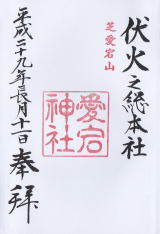 芝愛宕山
伏火之総本社
愛宕神社
奉拝
平成二十九年長月十二日